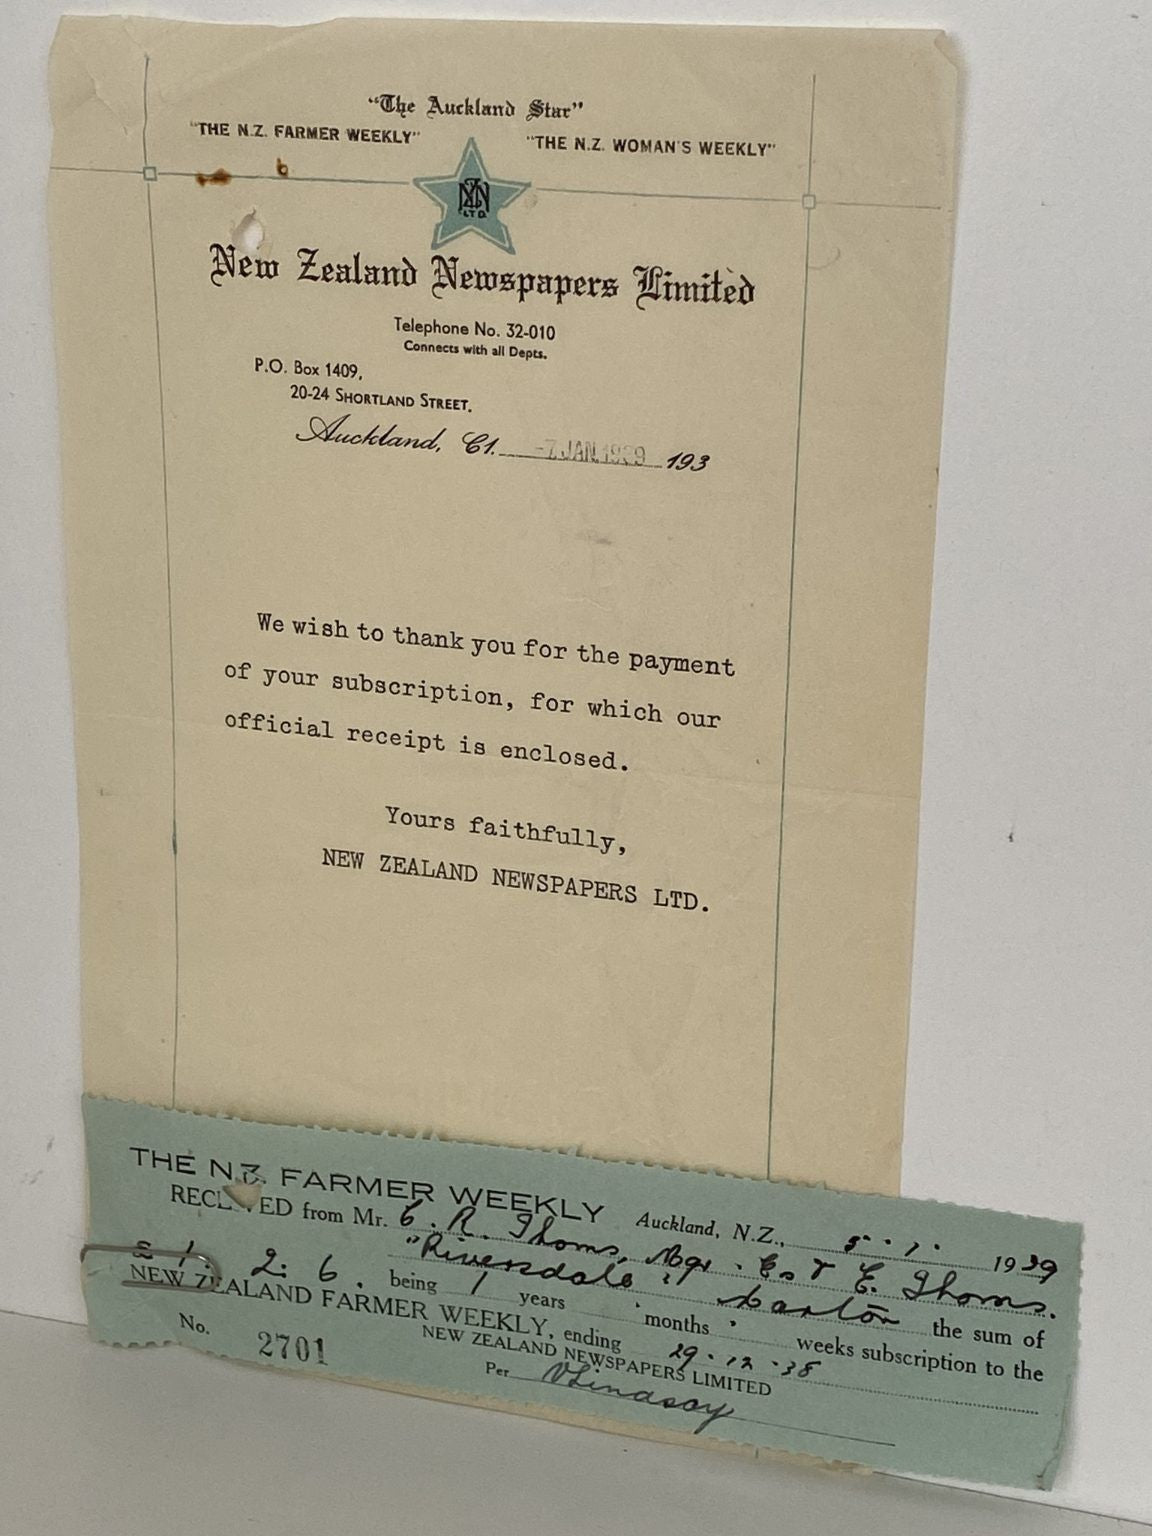 "The Auckland Star"
"THE N.Z. FARMER WEEKLY" "THE N.Z. WOMAN'S WEEKLY"
NZN
LTD.
New Zealand Newspapers Limited
Telephone No. 32-010
Connects with all Depts.
P.O. Box 1409,
20-24 SHORTLAND STREET,
Auckland, C1. -7 JAN.1939 193
We wish to thank you for the payment
of your subscription, for which our
official receipt is enclosed.
Yours faithfully,
NEW ZEALAND NEWSPAPERS LTD.
THE N.Z. FARMER WEEKLY
Auckland, N.Z., 5.1. 1939
RECEIVED from Mr. C. R. Thoms, Mgr. C. & E. Thoms.
"Riversdale", Marton the sum of
£ 1: 2: 6. being 1 years months weeks subscription to the
NEW ZEALAND FARMER WEEKLY, ending 29.12.38
NEW ZEALAND NEWSPAPERS LIMITED
No. 2701 Per VLindsay